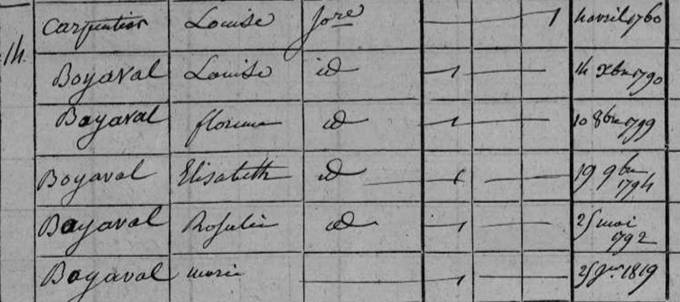 Carpentier Louise Jore 1 4 avril 1760
14.
Boyaval Louise id 1 14 Xbre 1790
Boyaval florine id 1 10 8bre 1799
Boyaval Elisabeth id 1 19 9bre
1794
Boyaval Rosalie id 1 25 mai
1792
Boyaval marie 1 1819